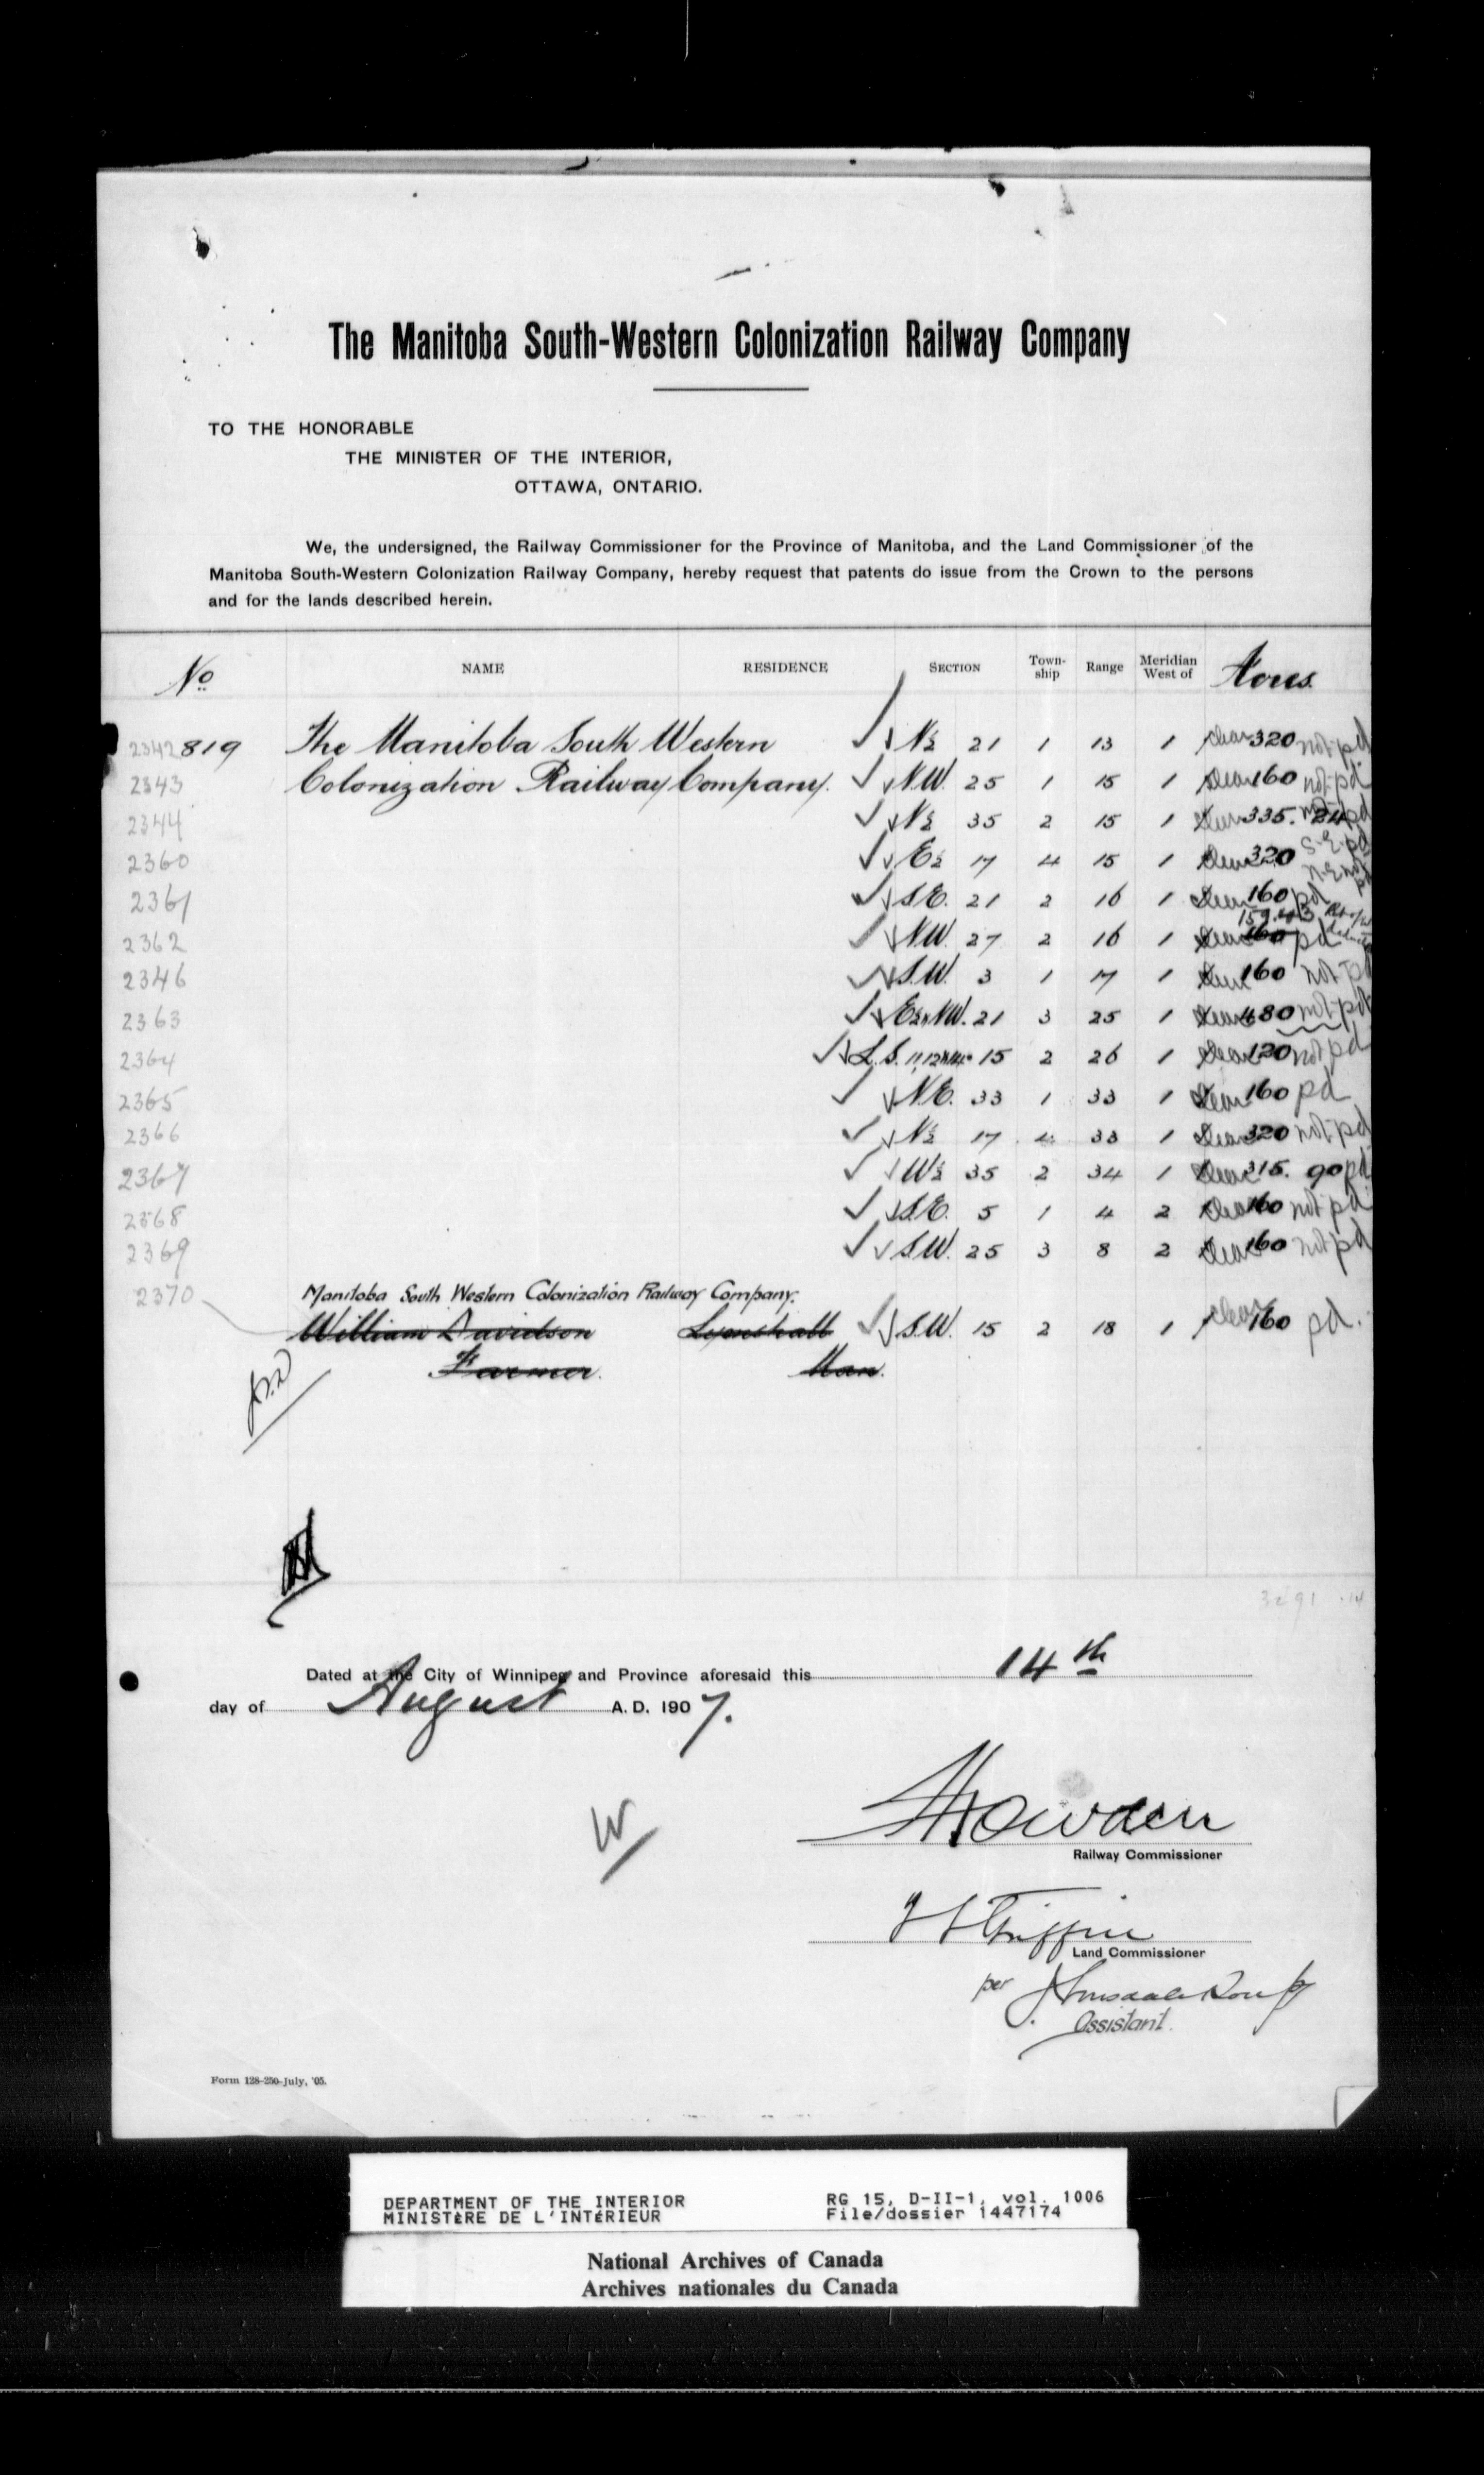 The Manitoba South-Western Colonization Railway Company
TO THE HONORABLE
THE MINISTER OF THE INTERIOR,
OTTAWA, ONTARIO.
We, the undersigned, the Railway Commissioner for the Province of Manitoba, and the Land Commissioner of the
Manitoba South-Western Colonization Railway Company, hereby request that patents do issue from the Crown to the persons
and for the lands described herein.
No NAME RESIDENCE SECTION Town-ship Range Meridian West of Acres
2342 819 The Manitoba South Western N½ 21 1 13 1 clear 320 not pd
2343 Colonization Railway Company. N.W. 25 1 15 1 clear 160 not pd
2344 N½ 35 2 15 1 clear 335. 24 not pd
2360 E½ 17 4 15 1 clear 320 S.E. pd N.E. not pd
2361 S.E. 21 2 16 1 clear 160 pd
2362 N.W. 27 2 16 1 clear 160 159.43 pd
2346 S.W. 3 1 17 1 clear 160 not pd
2363 E½ & N.W. 21 3 25 1 clear 480 not pd
2364 L.S. 11, 12 & 14 15 2 26 1 clear 120 not pd
2365 N.E. 33 1 33 1 clear 160 pd
2366 N½ 17 4 33 1 clear 320 not pd
2367 W½ 35 2 34 1 clear 315. 90 pd
2368 S.E. 5 1 4 2 clear 160 not pd
2369 S.W. 25 3 8 2 clear 160 not pd
2370 Manitoba South Western Colonization Railway Company.
William Davidson Lyonshall S.W. 15 2 18 1 clear 160 pd.
Farmer. Man.
3291 .14
Dated at the City of Winnipeg and Province aforesaid this 14th
day of August A.D. 1907.
Railway Commissioner
Griffin
Land Commissioner
per
Assistant.
Form 128-250-July, '05.
DEPARTMENT OF THE INTERIOR RG 15, D-II-1, vol. 1006
MINISTÈRE DE L'INTÉRIEUR File/dossier 1447174
National Archives of Canada
Archives nationales du Canada